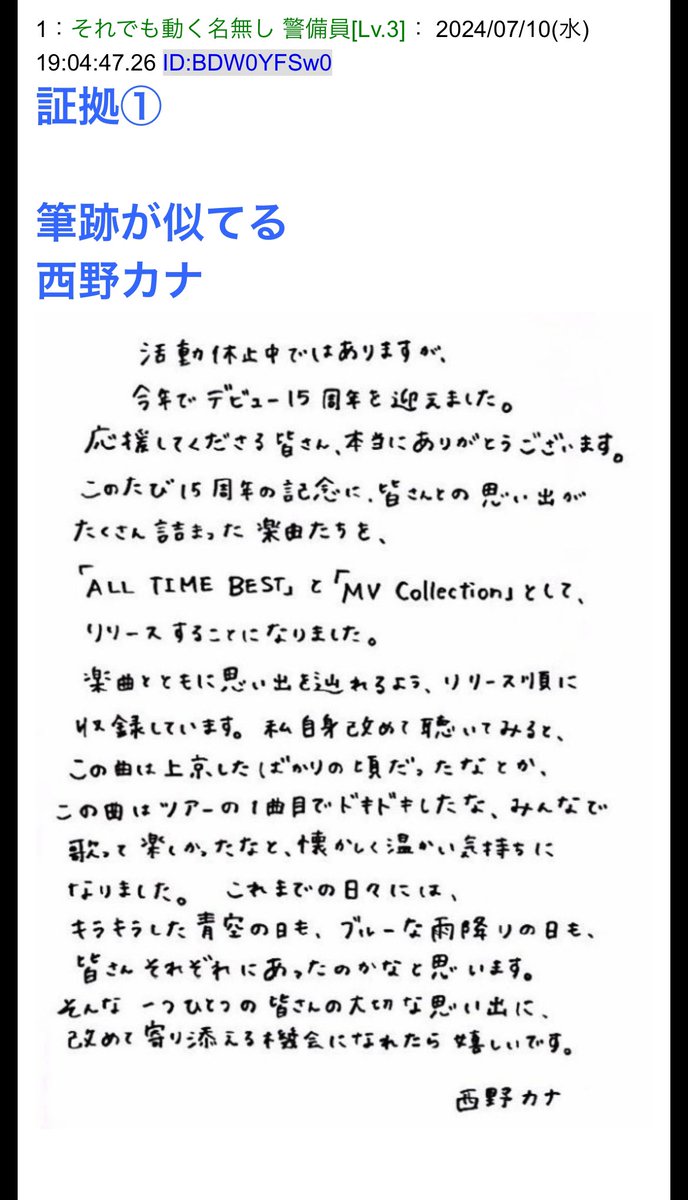 1：それでも動く名無し 警備員[Lv.3]： 2024/07/10(水)
19:04:47.26 ID:BDW0YFSw0
証拠①
筆跡が似てる
西野カナ
活動休止中ではありますが、
今年でデビュー15周年を迎えました。
応援してくださる皆さん、本当にありがとうございます。
このたび15周年の記念に、皆さんとの思い出が
たくさん詰まった楽曲たちを、
「ALL TIME BEST」と「MV Collection」として、
リリースすることになりました。
楽曲とともに思い出を辿れるよう、リリース順に
収録しています。私自身改めて聴いてみると、
この曲は上京したばかりの頃だったなとか、
この曲はツアーの1曲目でドキドキしたな、みんなで
歌って楽しかったなと、懐かしく温かい気持ちに
なりました。 これまでの日々には、
キラキラした青空の日も、ブルーな雨降りの日も、
皆さんそれぞれにあったのかなと思います。
そんな一つひとつの皆さんの大切な思い出に、
改めて寄り添える機会になれたら嬉しいです。
西野カナ